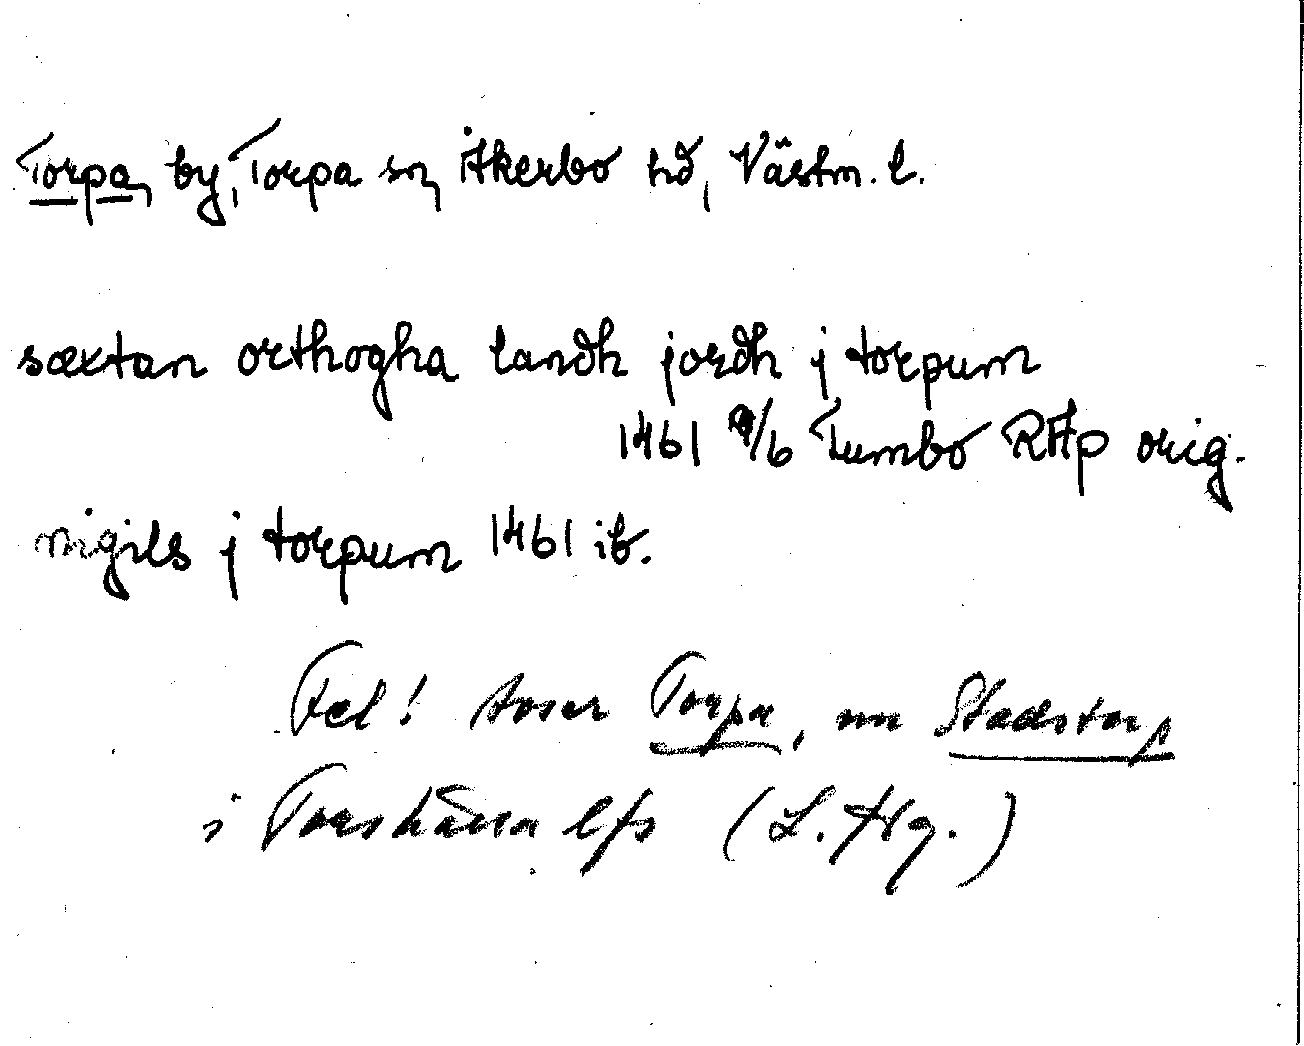 Torpa, by, Torpa sn, Åkerbo hd, Västm. l.
sæxtan orthogha landh jordh j torpum
1461 9/6 Tumbo RAp orig.
nigils j torpum 1461 ib.
Fel! avser Torpa, nu Stadstorp
i Torshälla lfs (L. Hg.)